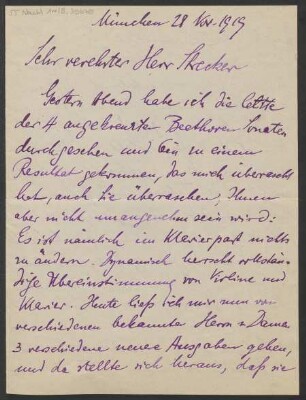 München 28 Nov. 1919
Sehr verehrter Herr Strecker
Gestern Abend habe ich die letzte
der 4 angekreuzten Beethoven Sonaten
durchgesehen und bin zu einem
Resultat gekommen, das mich überrascht
hat, auch Sie überraschen, Ihnen
aber nicht unangenehm sein wird:
Es ist nämlich im Klavierpart nichts
zu ändern. Dynamisch herscht vollstän-
dige Übereinstimmung von Violine und
Klavier. Heute ließ ich mir nun von
verschiedenen bekannten Herrn u Damen
3 verschiedene neue Ausgaben geben,
und da stellte sich heraus, daß sie